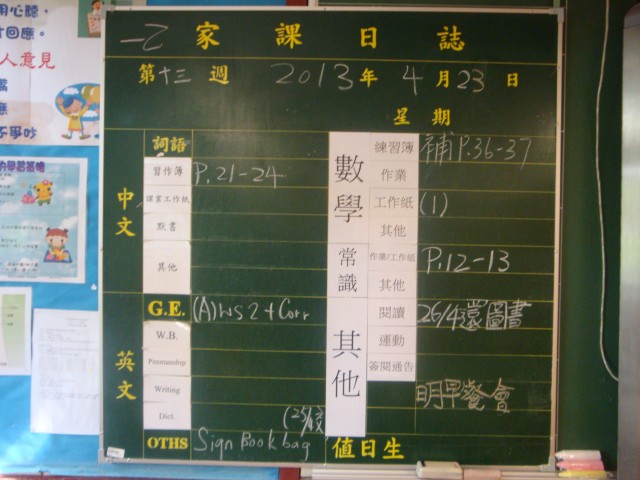 一乙 家課日誌
第十三週 2013年4月23日
星期
中文
詞語
習作簿 P.21-24
課業工作紙
默書
其他
英文
G.E. (A) WS 2 + Corr
W.B.
Penmanship
Writing
Dict.
OTHS Sign Book bag
數學
練習簿 補P.36-37
作業
工作紙 (1)
其他
常識
作業/工作紙 P.12-13
其他
其他
閱讀 26/4還圖書
運動
簽閱通告
明早餐會
值日生
用心聽，
人意見